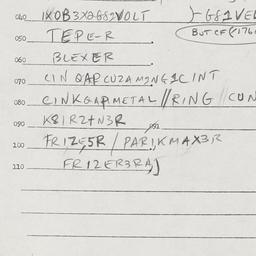 040 IXOB3XQG82VOLT }-G81VEL
050 TEPE-R (BUT CF(176
060 BLEXER
070 CIN QAPCUZAM2NG1CINT
080 CINKGAPIMETAL//RING/CUN
090 K8IRZTN3R
100 FRIZE,5R/PARIKMAX3R
110 FRIZER3RAJ